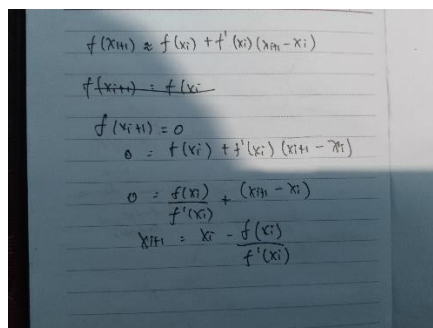 f(xi+1) ≈ f(xi) + f'(xi)(xi+1 - xi)
f(xi+1) = f(xi
f(xi+1) = 0
0 = f(xi) + f'(xi) (xi+1 - xi)
0 = f(xi)/f'(xi) + (xi+1 - xi)
xi+1 = xi - f(xi)/f'(xi)